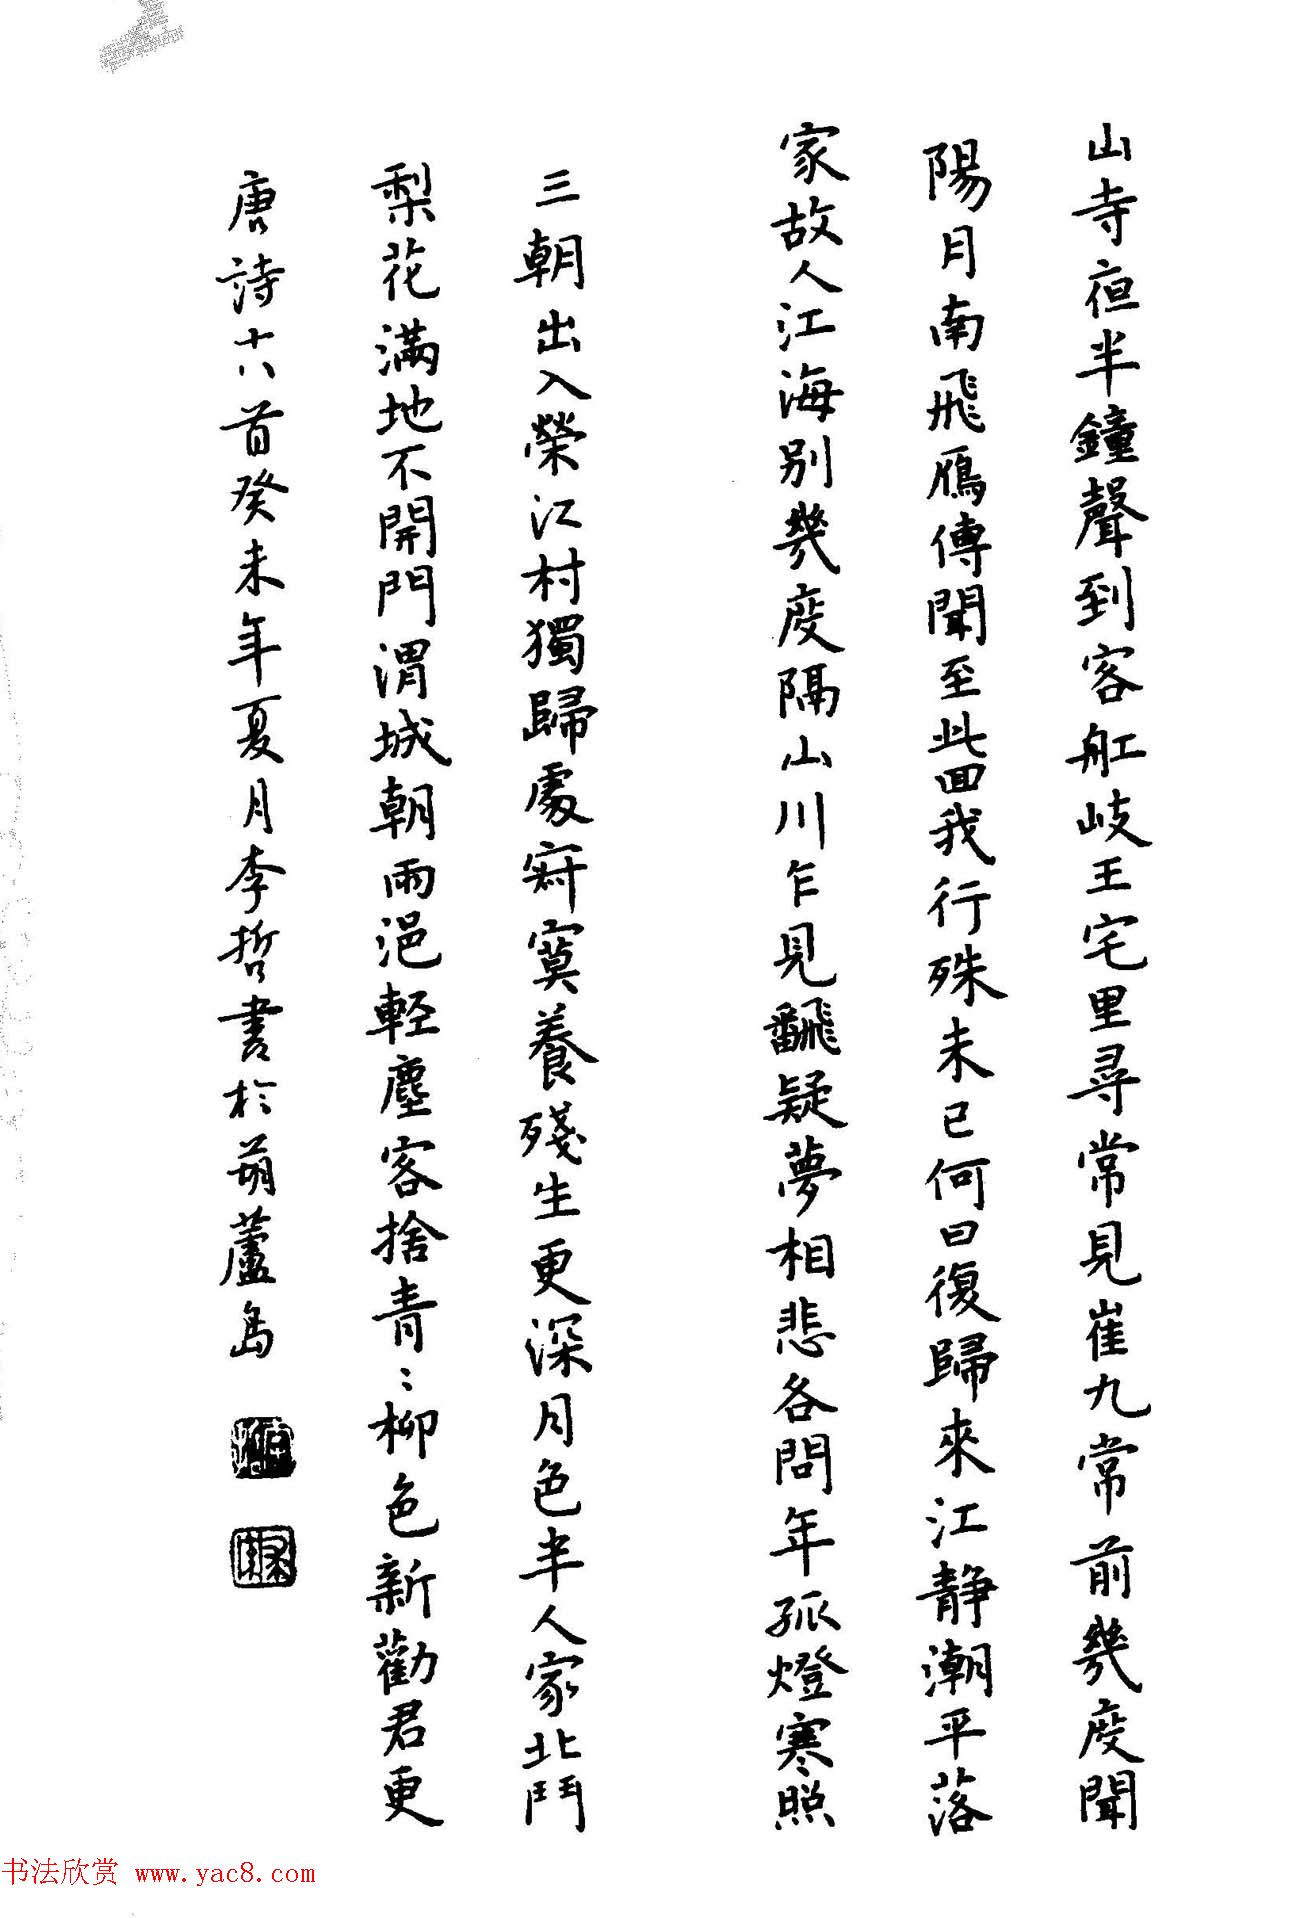 山寺亱半鐘聲到客舡岐王宅里尋常見崔九常前幾度聞
陽月南飛鴈傳聞至此回我行殊未已何日復歸來江静潮平落
家故人江海別幾度隔山川乍見飜疑夢相悲各問年孤燈寒照
三朝出入榮江村獨歸處寂寞養殘生更深月色半人家北鬥
梨花滿地不開門渭城朝雨浥輕塵客捨青〻柳色新勸君更
唐詩十八首癸未年夏月李哲書於葫蘆島
书法欣赏 www.yac8.com